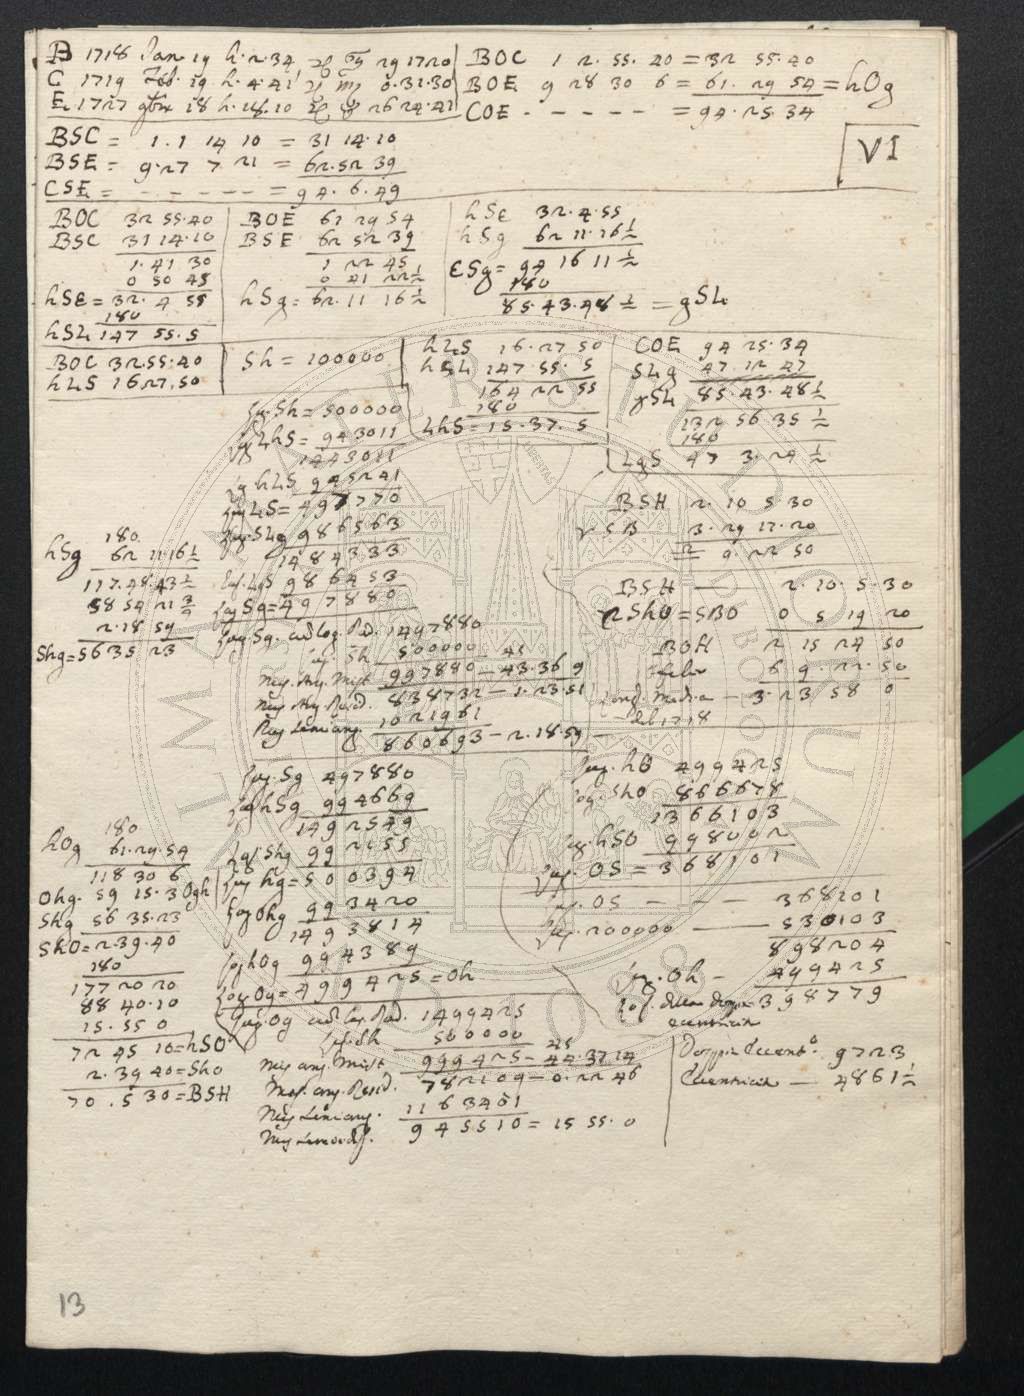 B 1718 Jan 19 h. 2. 34 ♃ ♌ 29 17 20
C 1719 Feb. 19 h. 4. 41 ♃ ♍ 0. 31. 30
E 1727 9bre 18 h. 18. 10 ♃ 26 24. 41
BOC 1 2. 55. 40 = 32 55. 40
BOE 9 28 30 6 = 61. 29 54 = hOg
COE - - - - - = 94. 25. 34
VI
BSC = 1. 1 14 10 = 31 14. 10
BSE = 9. 27 7 21 = 62. 52 39
CSE = - - - - - - = 94. 6. 49
BOC 32 55. 40
BSC 31 14. 10
1. 41 30
0 50 45
hSE = 32. 4 55
180
hSL 147 55. 5
BOE 61 29 54
BSE 62 52 39
1 22 45
0 41 22½
hSg = 62. 11 16½
hSE 32. 4. 55
hSg 62 11. 16½
ESg = 94 16 11½
180
85. 43. 48½ = gSL
BOC 32. 55. 40
hLS 16 27. 50
Sh = 100000
hLS 16. 27 50
hSL 147. 55. 5
164 22 55
180
LhS = 15. 37. 5
COE 94 25. 34
SLg 47. 12 47
gSL 85. 43. 48½
132 56 35½
180
LgS 47 3. 24½
Log. Sh = 500000
Log LhS = 943011
1443011
Log hLS 945241
Log LS = 497770
Log. SLg 986563
1484333
Log. LgS 986453
Log Sg = 497880
Log Sg. ad Log. Rad. 1497880
Log. Sh 500000 45
997880 — 43. 36 9
838732 — 1. 23. 51
1021961
860693 — 2. 18. 59
180
hSg 62 11. 16½
117. 48. 43½
58 54 21¾
2. 18 59
Shg = 56 35 23
BSH 2. 10 5 30
♈SB 3. 29 17. 20
9. 22 50
BSH — 2. 10. 5. 30
ShO = SBO 0 5 19 20
BOH 2 15 24 50
6 9. 22. 50
Long. Media — 3. 23 58 0
del 1718
Log. Sg 497880
Log hSg 994669
1492549
Log. Shg 992155
Log hg = 500394
Log Ohg 993420
1493814
Log hOg 994389
Log Og = 499425 = Oh
180
hOg 61. 29. 54
118 30 6
Ohg. 59 15. 3 Ogh
Shg 56 35. 23
ShO = 2. 39. 40
180
177 20 20
88 40. 10
15. 55 0
72 45 10 = hSO
2. 39 40 = ShO
70. 5 30 = BSH
Log. Og ad Log. Rad. 1499425
Log. Sh 500000 45
999425 — 44. 37 14
782109 — 0. 22 46
1163401
945510 = 15 55. 0
Log. hO 499425
Log. ShO 866678
1366103
Log. hSO 998002
Log. OS = 368101
Log. OS — — — 368101
Log. 200000 — 530103
898204
Log. Oh — 499425
Log. della doppia 398779
eccentricità
Doppia Eccentr. 9723
Eccentricità — 4861½
13